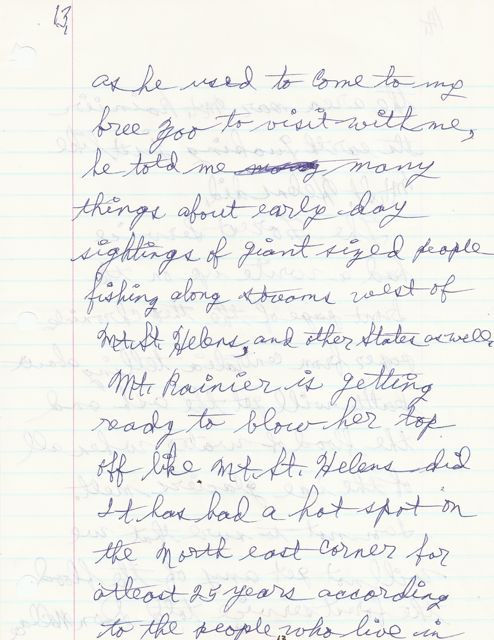 13
as he used to come to my
free zoo to visit with me,
he told me many
things about early day
sightings of giant sized people
fishing along streams west of
Mt. St. Helens, and other States as well,
Mt. Rainier is getting
ready to blow her top
off like Mt. St. Helens did
It has had a hot spot on
the North east corner for
atleast 25 years according
to the people who live in
13